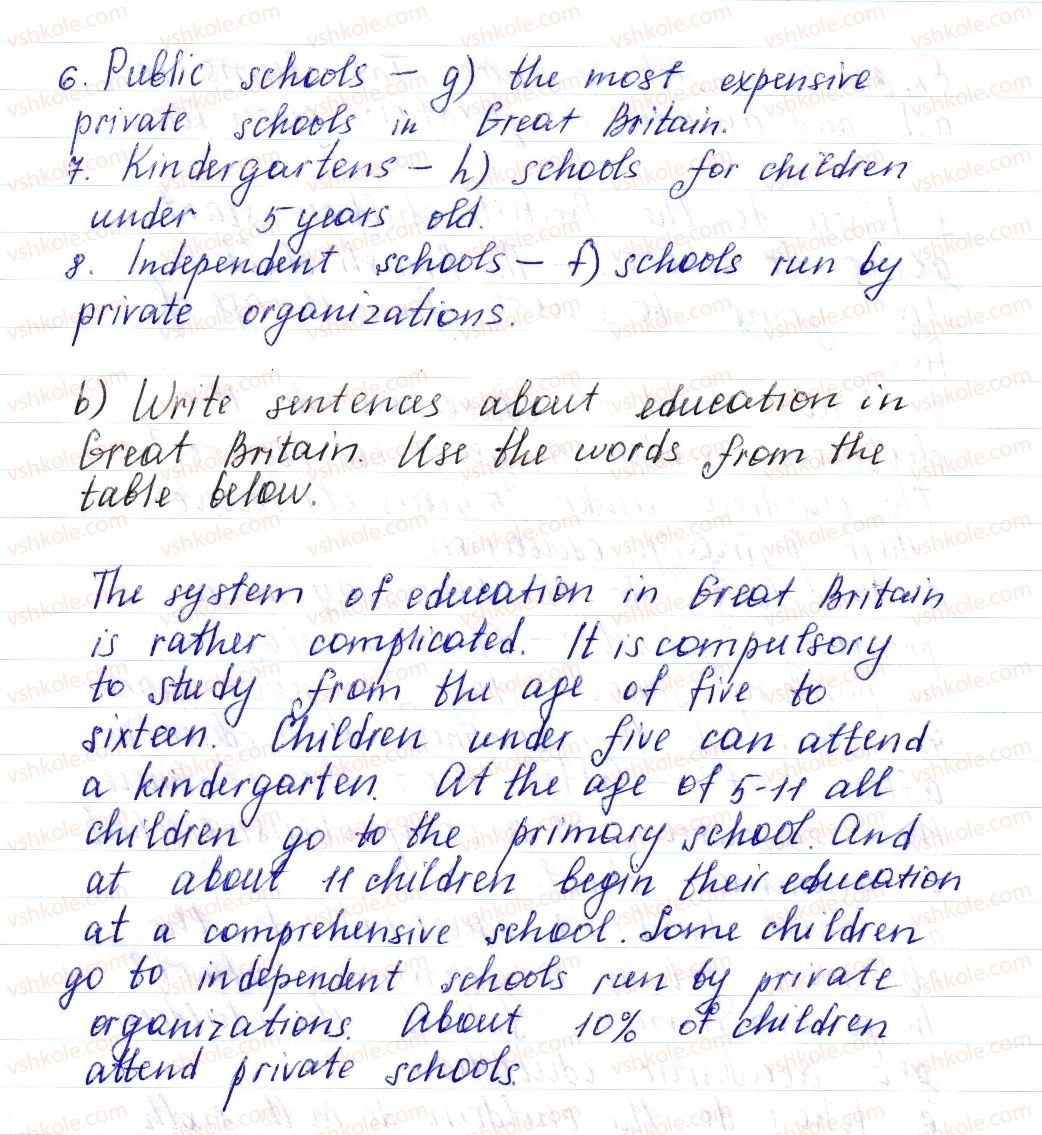 6. Public schools – g) the most expensive
private schools in Great Britain.
7. Kindergartens – h) schools for children
under 5 years old.
8. Independent schools – f) schools run by
private organizations.
b) Write sentences about education in
Great Britain. Use the words from the
table below.
The system of education in Great Britain
is rather complicated. It is compulsory
to study from the age of five to
sixteen. Children under five can attend
a kindergarten. At the age of 5-11 all
children go to the primary school. And
at about 11 children begin their education
at a comprehensive school. Some children
go to independent schools run by private
organizations. About 10% of children
attend private schools.